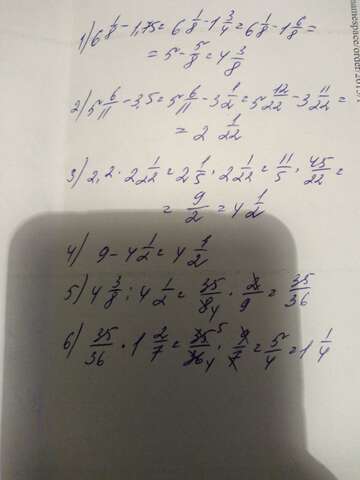 1) 6 1/8 - 1,75 = 6 1/8 - 1 3/4 = 6 1/8 - 1 6/8 =
= 5 - 5/8 = 4 3/8
2) 5 6/11 - 3,5 = 5 6/11 - 3 1/2 = 5 12/22 - 3 11/22 =
= 2 1/22
3) 2,2 · 2 1/22 = 2 1/5 · 2 1/22 = 11/5 · 45/22 =
= 9/2 = 4 1/2
4) 9 - 4 1/2 = 4 1/2
5) 4 3/8 : 4 1/2 = 35/8 4 · 2/9 = 35/36
6) 35/36 · 1 2/7 = 35 5/36 4 · 9/7 = 5/4 = 1 1/4